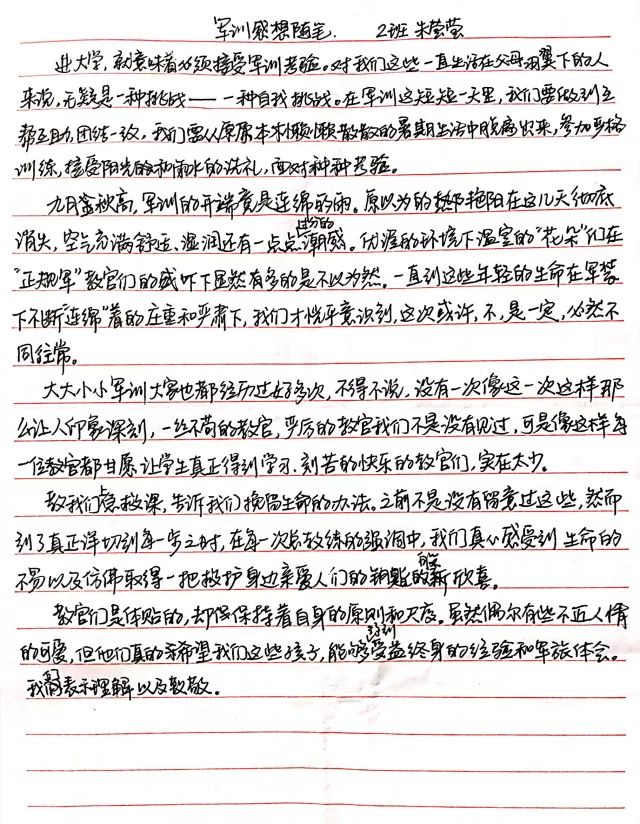 军训感想随笔. 2班 朱莹莹
进大学，就意味着必须接受军训考验。对我们这些一直生活在父母羽翼下的人
来说，无疑是一种挑战——一种自我挑战。在军训这短短一天里，我们要做到互
帮互助，团结一致，我们要从原原本本懒懒散散的暑期生活中脱离出来，参加严格
训练，接受阳光的和雨水的洗礼，面对种种考验。
九月金秋高，军训的开端竟是连绵的雨。原以为的热那艳阳在这几天彻底
消失，空气充满舒适、湿润还有一点点过分的潮感。优渥的环境下温室的“花朵”们在
“正规军”教官们的威吓下显然有多的是不以为然。一直到这些年轻的生命在军营
下不断“连绵”着的庄重和严肃下，我们才恍乎意识到，这次或许，不，是一定，必然不
同往常。
大大小小军训大家也都经历过好多次，不得不说，没有一次像这一次这样那
么让人印象深刻，一丝不苟的教官，严厉的教官我们不是没有见过，可是像这样每
一位教官都甘愿让学生真正得到学习、刻苦的快乐的教官们，实在太少。
教我们急救课，告诉我们挽留生命的办法。之前不是没有留意过这些，然而
到了真正详切到每一步之时，在每一次总教练的强调中，我们真心感受到生命的
不易以及仿佛取得一把救护身边亲爱人们的钥匙的欣喜。
教官们是体贴的，却保保持着自身的原则和尺度。虽然偶尔有些不近人情
的可爱，但他们真的希望我们这些孩子，能够得到受益终身的经验和军旅体会。
我们表示理解以及致敬。